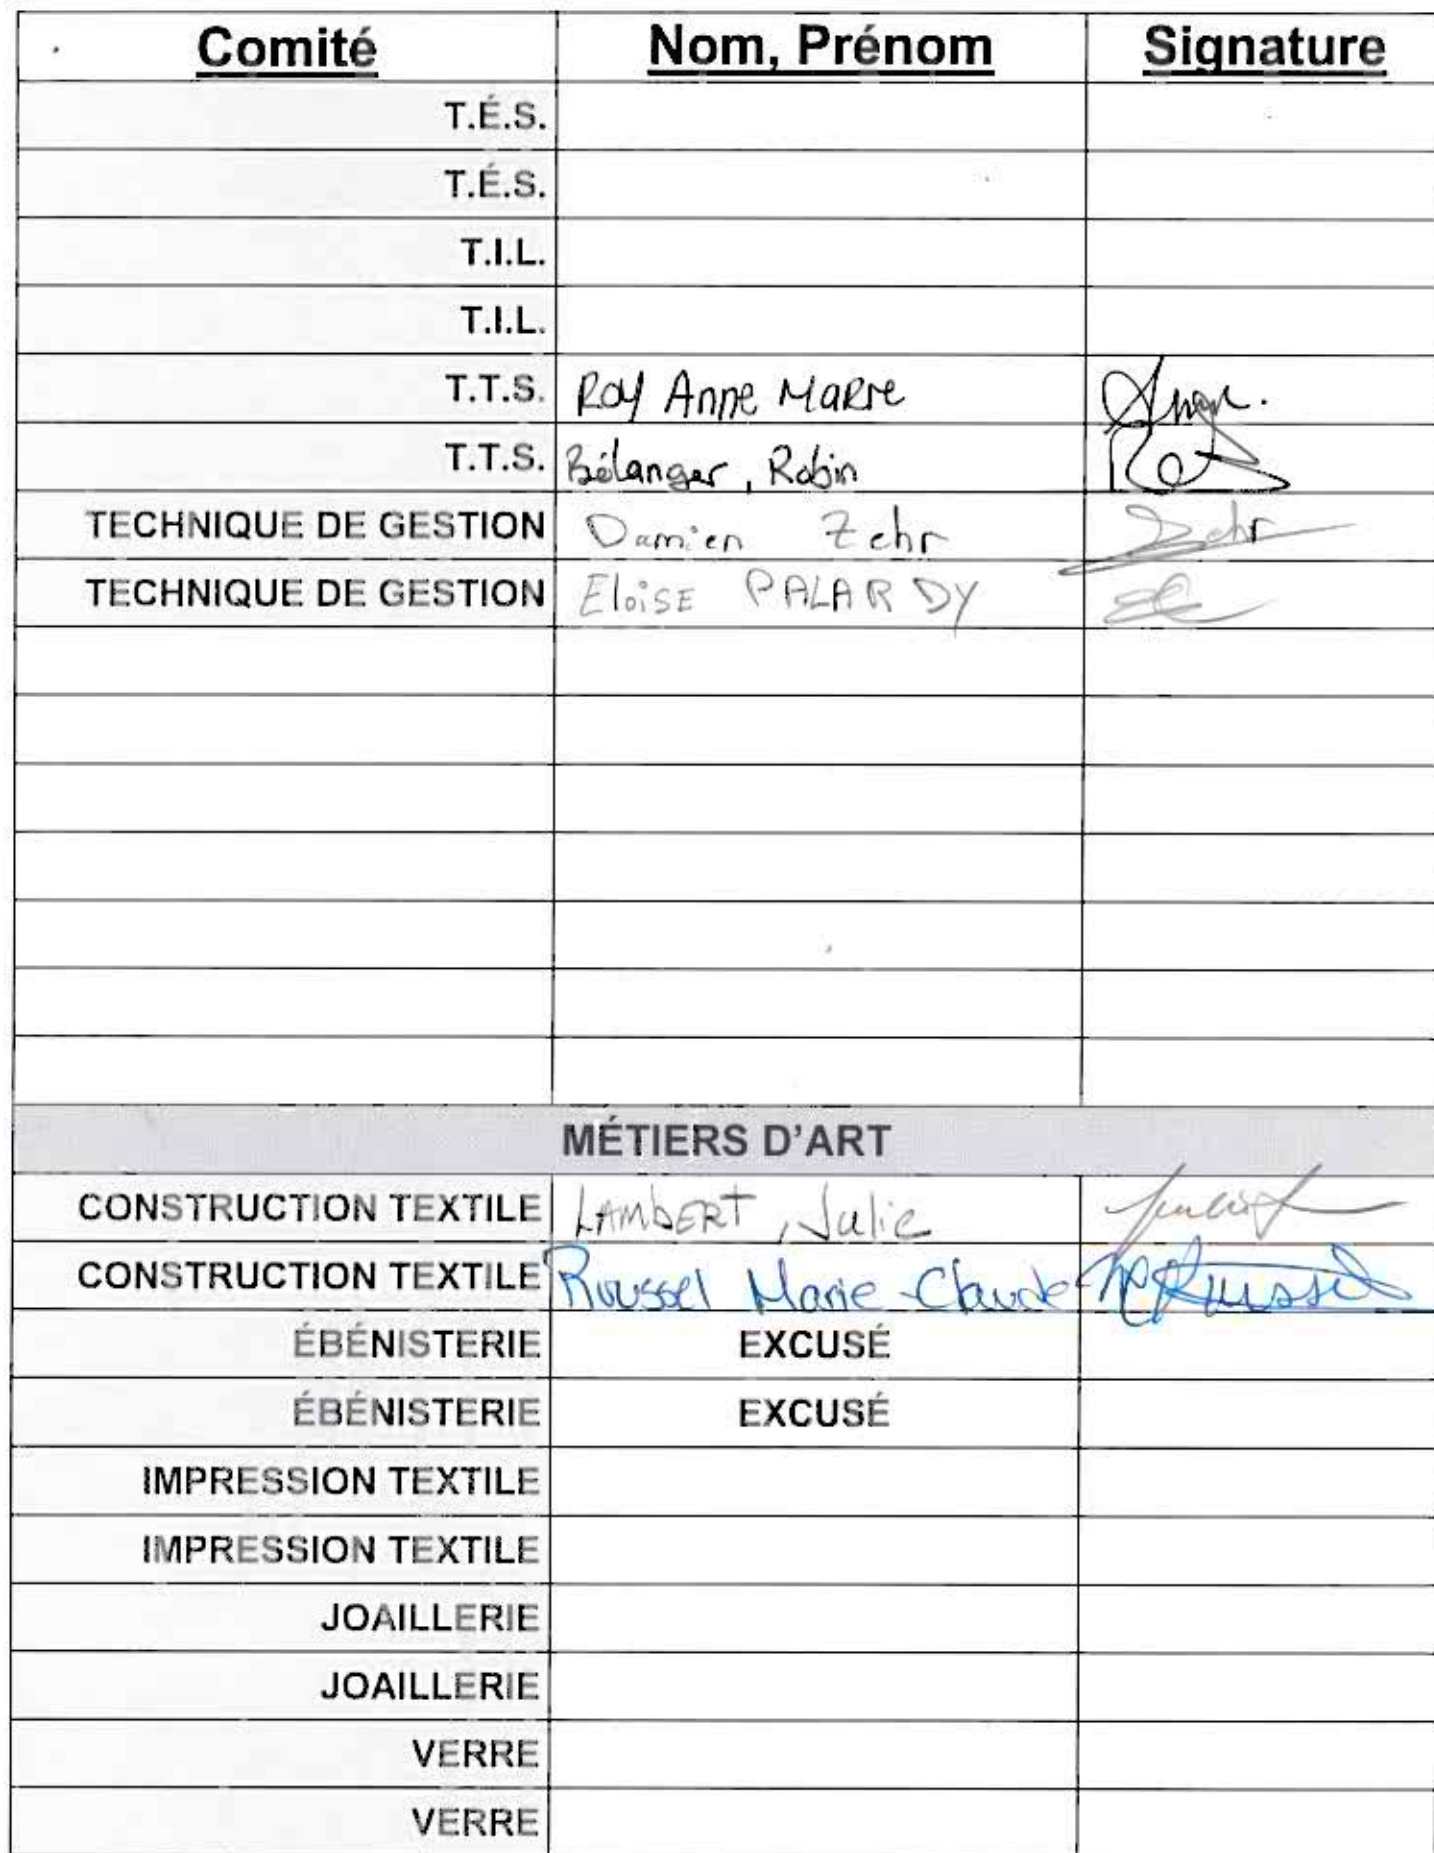 Comité Nom, Prénom Signature
T.É.S.
T.É.S.
T.I.L.
T.I.L.
T.T.S. Roy Anne Marie
T.T.S. Bélanger, Robin
TECHNIQUE DE GESTION Damien Zehr Zehr
TECHNIQUE DE GESTION Eloise PALARDY
MÉTIERS D'ART
CONSTRUCTION TEXTILE LAMBERT, Julie
CONSTRUCTION TEXTILE Roussel Marie-Claude
ÉBÉNISTERIE EXCUSÉ
ÉBÉNISTERIE EXCUSÉ
IMPRESSION TEXTILE
IMPRESSION TEXTILE
JOAILLERIE
JOAILLERIE
VERRE
VERRE